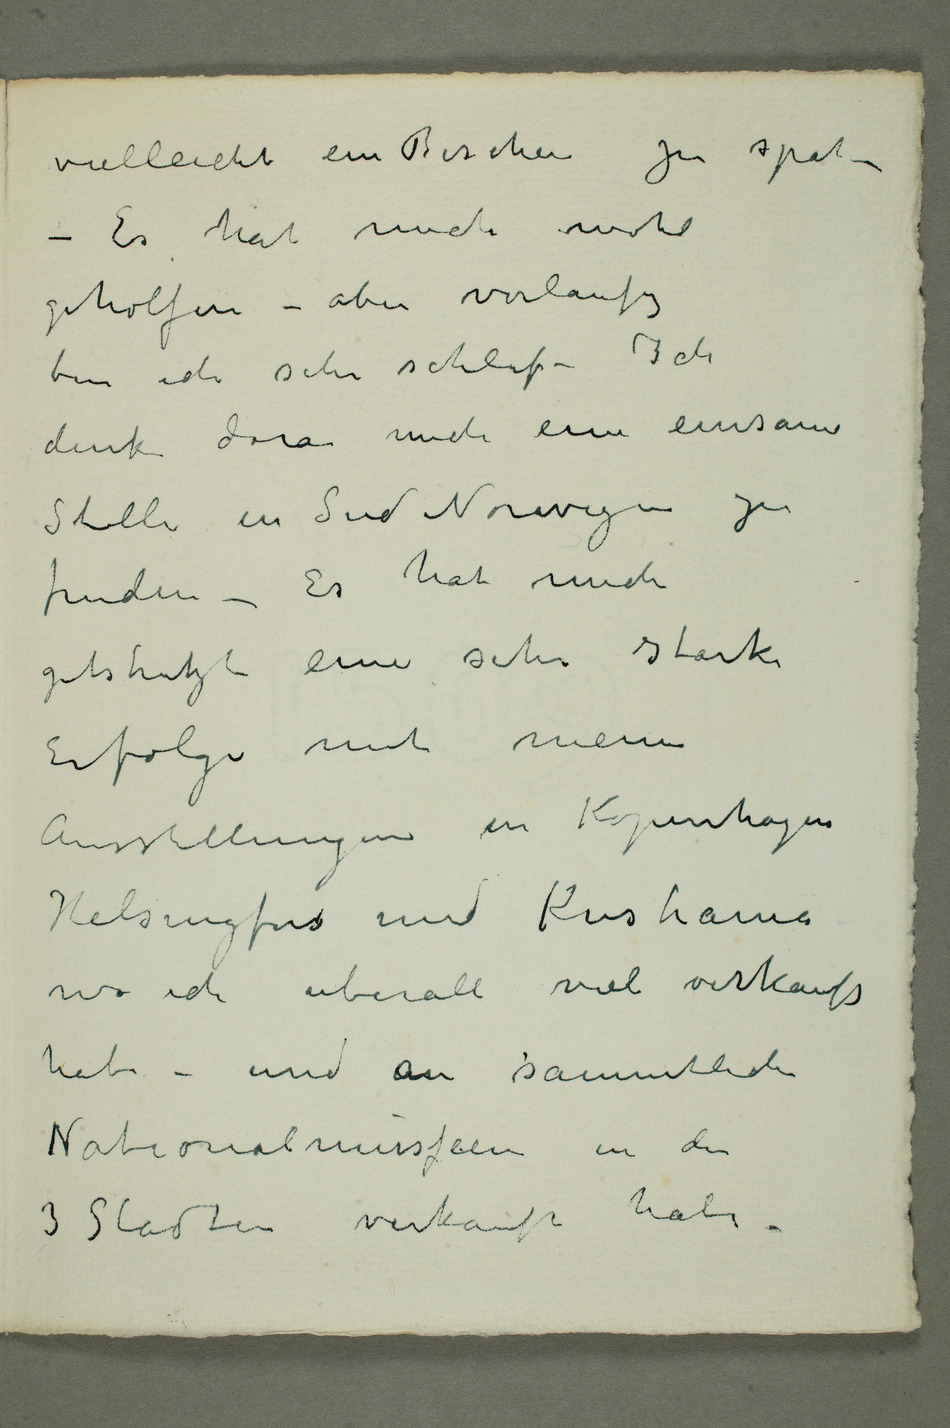 vielleicht ein Bischen zu spat –
– Es hat mich wohl
geholfen – aber vorlaufig
bin ich sehr schlaf – Ich
denke daran mich eine einsame
Stelle in Sud Norwegen zu
finden – Es hat mich
getstutzt eine sehr starke
Erfolge mit meine
Ausstellungen in Kopenhagen
Helsingfors und Kristiania
wo ich uberall viel verkauft
habe – und an sammtliche
Nationalmussjeen in den
3 Stadten verkauft habe –